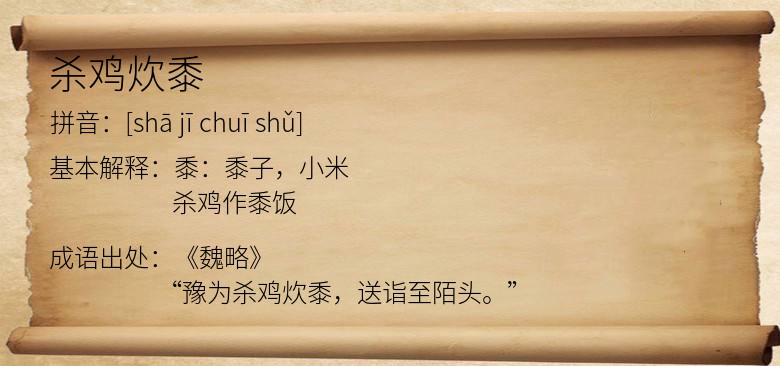 杀鸡炊黍
拼音：[shā jī chuī shǔ]
基本解释：黍：黍子，小米
杀鸡作黍饭
成语出处：《魏略》
“豫为杀鸡炊黍，送诣至陌头。”